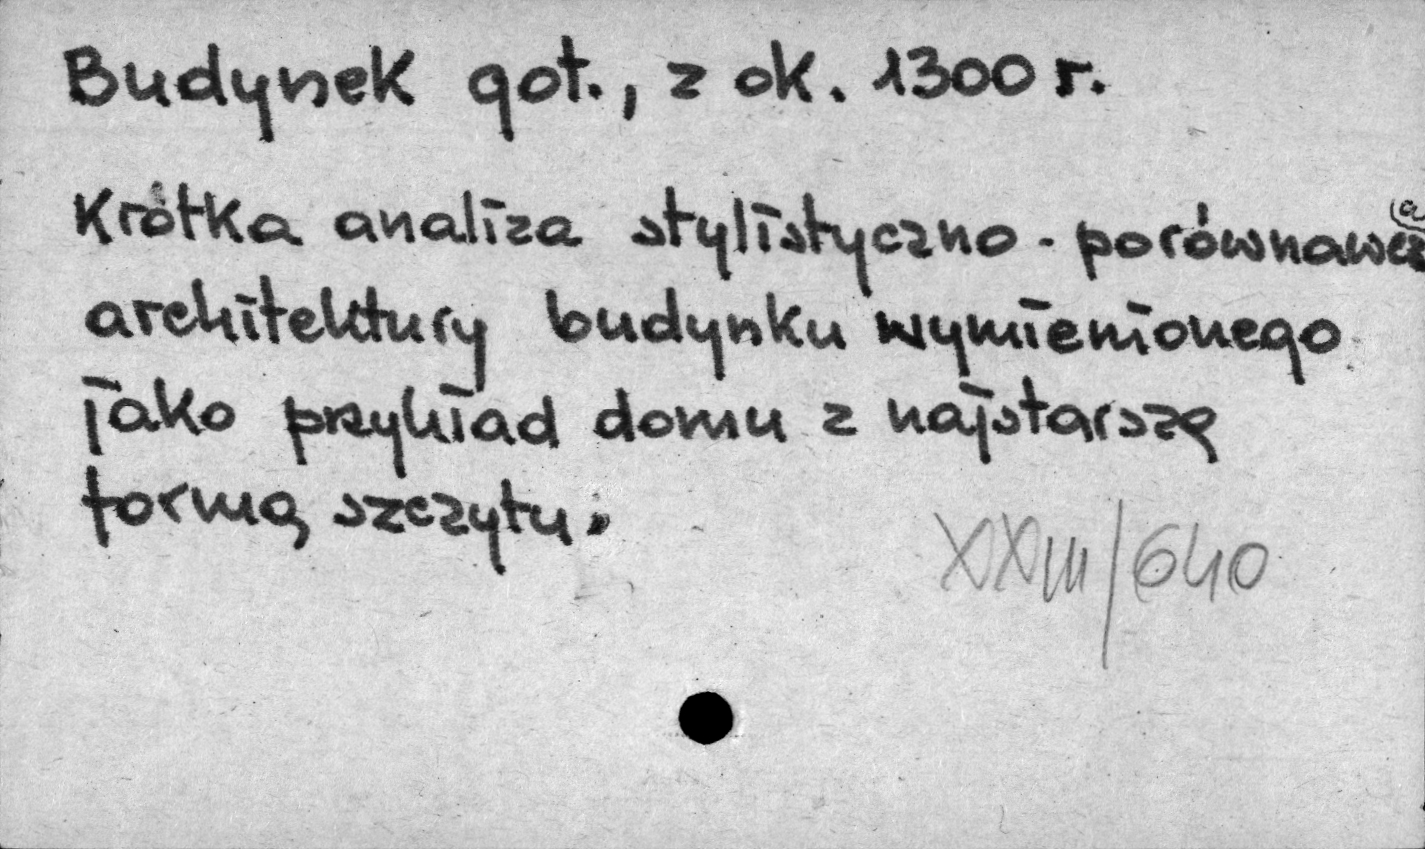 Budynek got., z ok. 1300 r.
Krótka analiza stylistyczno - porównawcza
architektury budynku wymienionego
jako przykład domu z najstarszą
formą szczytu.
XXIII/640